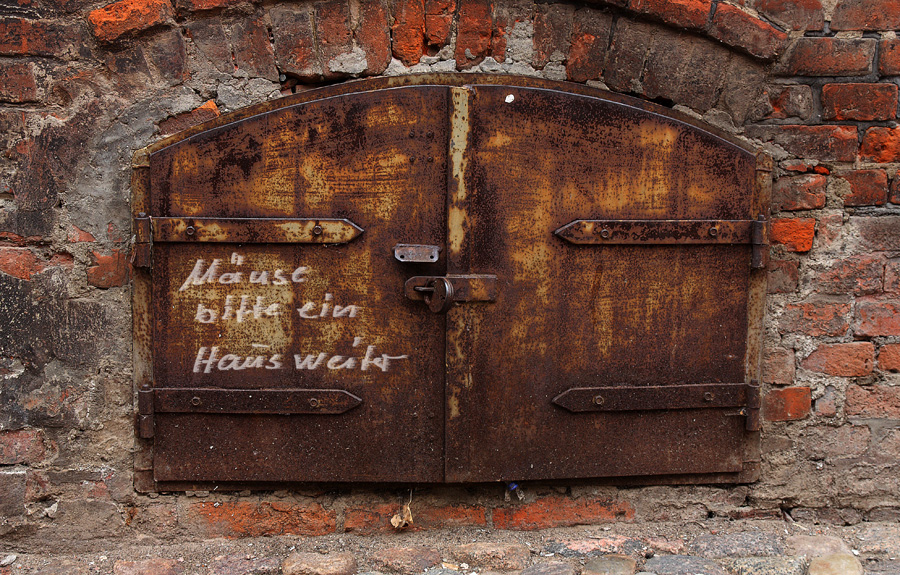 Mäuse
bitte ein
Haus weiter